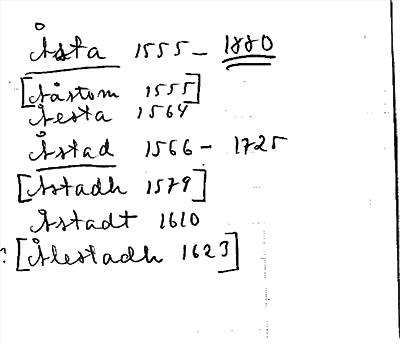 Åsta 1555 – 1880
[Aåstom 1555]
Aesta 1564
Åstad 1566 – 1725
[Åstadh 1579]
Åstadt 1610
[Ålestadh 1623]